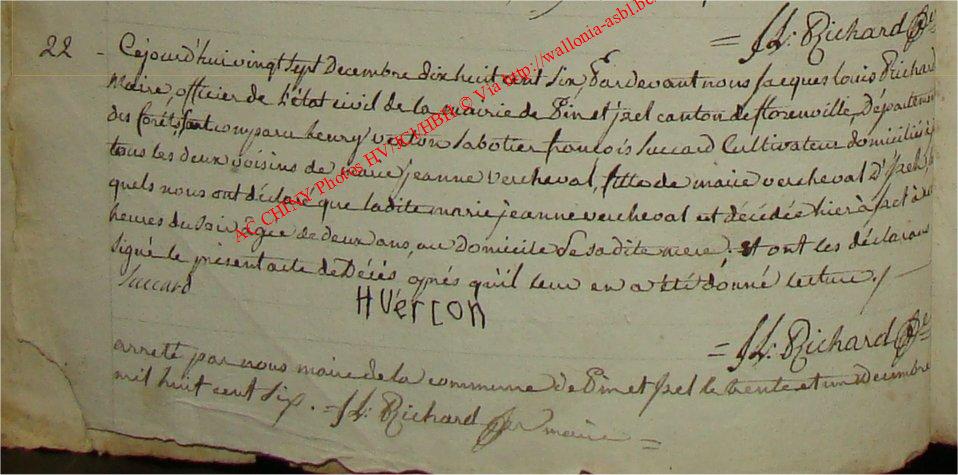 = J L: Richard
22 - Cejourd'hui vingt Sept Decembre dix huit cent Six, Pardevant nous Jacques Louis Richard
Maire, officier de L'état civil de la mairie de Pin et jzel canton de florenville, Département
des forêts, sont comparu henry verson Sabotier françois Succard Cultivateur domiciliés
tous les deux voisins de marie jeanne vercheval, fille de marie vercheval D'jzel, les
quels nous ont déclaré que ladite marie jeanne vercheval est décédée hier à sept
heures du Soir âgée de deux ans, au Domicile de sa dite mere, et ont les déclarans
Signé le présent acte de Décés, aprés qu'il leur en a été donné lecture ./
Succard
HVercon
= J L: Richard
arreté par nous maire de la commune de Pin et jzel le trente et un Decembre
mil huit cent Six. = J L: Richard maire =
AC CHINY Photos HV/JCI/HBH © Via http://wallonia-asbl.be